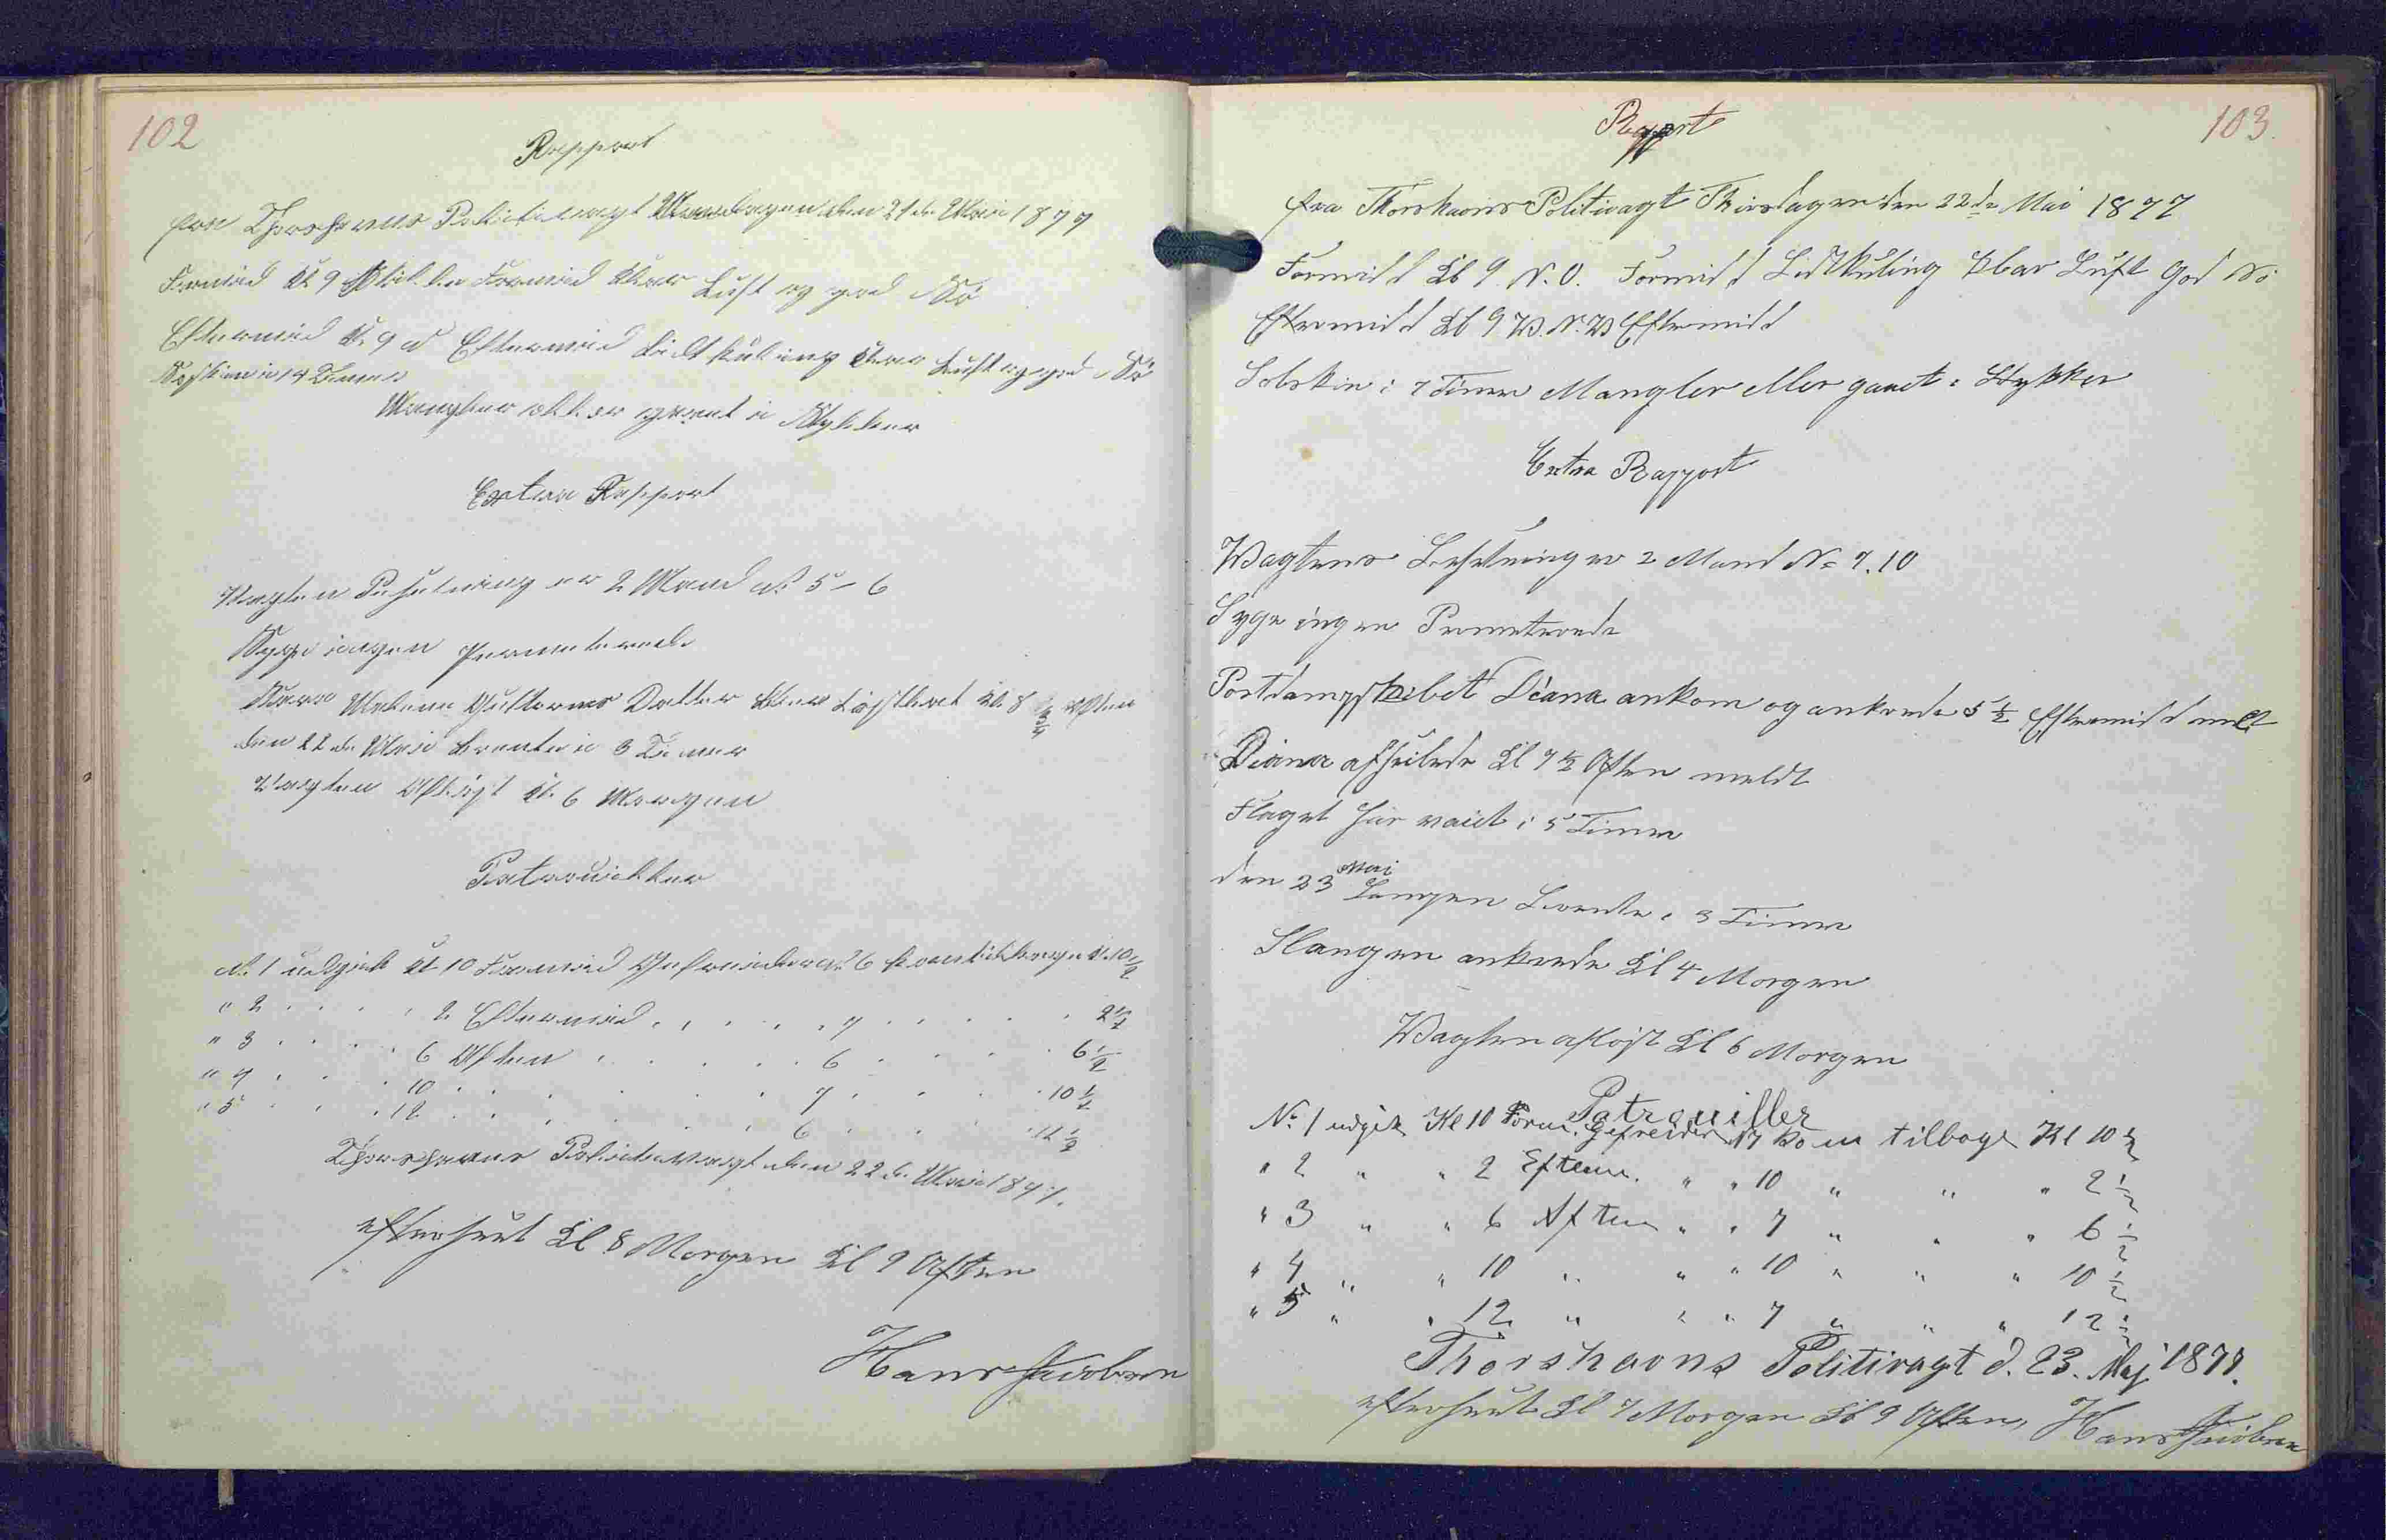 102
Rapport
fra Thorshavns Politivagt Mandagen den 21de Mai 1877
Formid Kl 9 Stille Formid klar Luft og god Sö
Eftermid Kl. 9 Ø Eftermid Lidt kuling klar Luft og god Sö
Solskin i 14 Timer
Mangler eller gaaet i Stykker
Extra Rapport
Vagten Besetning er 2 Mand No 5 - 6
Syge ingen Permeterede
Datter blev Kl 8 Aften
den 22de Mai brente i 3 Timer
Vagten Aflöst Kl. 6 Morgen
Patrouiller
No 1 udgik Kl 10 Formid Gefreider No 6 kom tilbage Kl. 10 1/2
" 2 " " 2 Eftermid " " 7 " " " 2 1/2
" 3 " " 6 Aften " " 6 " " " 6 1/2
" 4 " " 10 " " " 7 " " " 10 1/2
" 5 " " 12 " " " 6 " " " 12 1/2
Thorshavns Politivagt den 22de Mai 1877.
efterseet Kl 8 Morgen Kl 9 Aften
Hans Jacobsen
103.
Rapport
fra Thorshavns Politivagt Thirsdagen den 22de Mai 1877
Formidd Kl 9 N. O. Formidd Lidt Kuling klar Luft God Sö
Eftermidd Kl 9 W. N. W Eftermidd
Solskin i 7 Timer Mangler eller gaaet i Stykker
Extra Rapport
Wagtens Besetning er 2 Mand No 7. 10
Syge ingen Permeterede
Postdampskibet Diana ankom og ankrede 5 1/2 Eftermidd meldt
Diana afseilede Kl 7 1/2 Aften meldt
Flaget har vaiet i 5 Timer
den 23 Mai Lampen Brente i 3 Timer
Slangen ankrede Kl 4 Morgen
Wagten aflöst Kl 6 Morgen
Patrouiller
No 1 udgik Kl 10 Form. Gefreider No 7 kom tilbage Kl 10 1/2
" 2 " " 2 Efterm. " " 10 " " " 2 1/2
" 3 " " 6 Aften " " 7 " " " 6 1/2
" 4 " " 10 " " " 10 " " " 10 1/2
" 5 " " 12 " " " 7 " " " 12 1/2
Thorshavns Politivagt d. 23. Maj 1877.
efterseet Kl 7 Morgen Kl 9 Aften, Hans Jacobsen